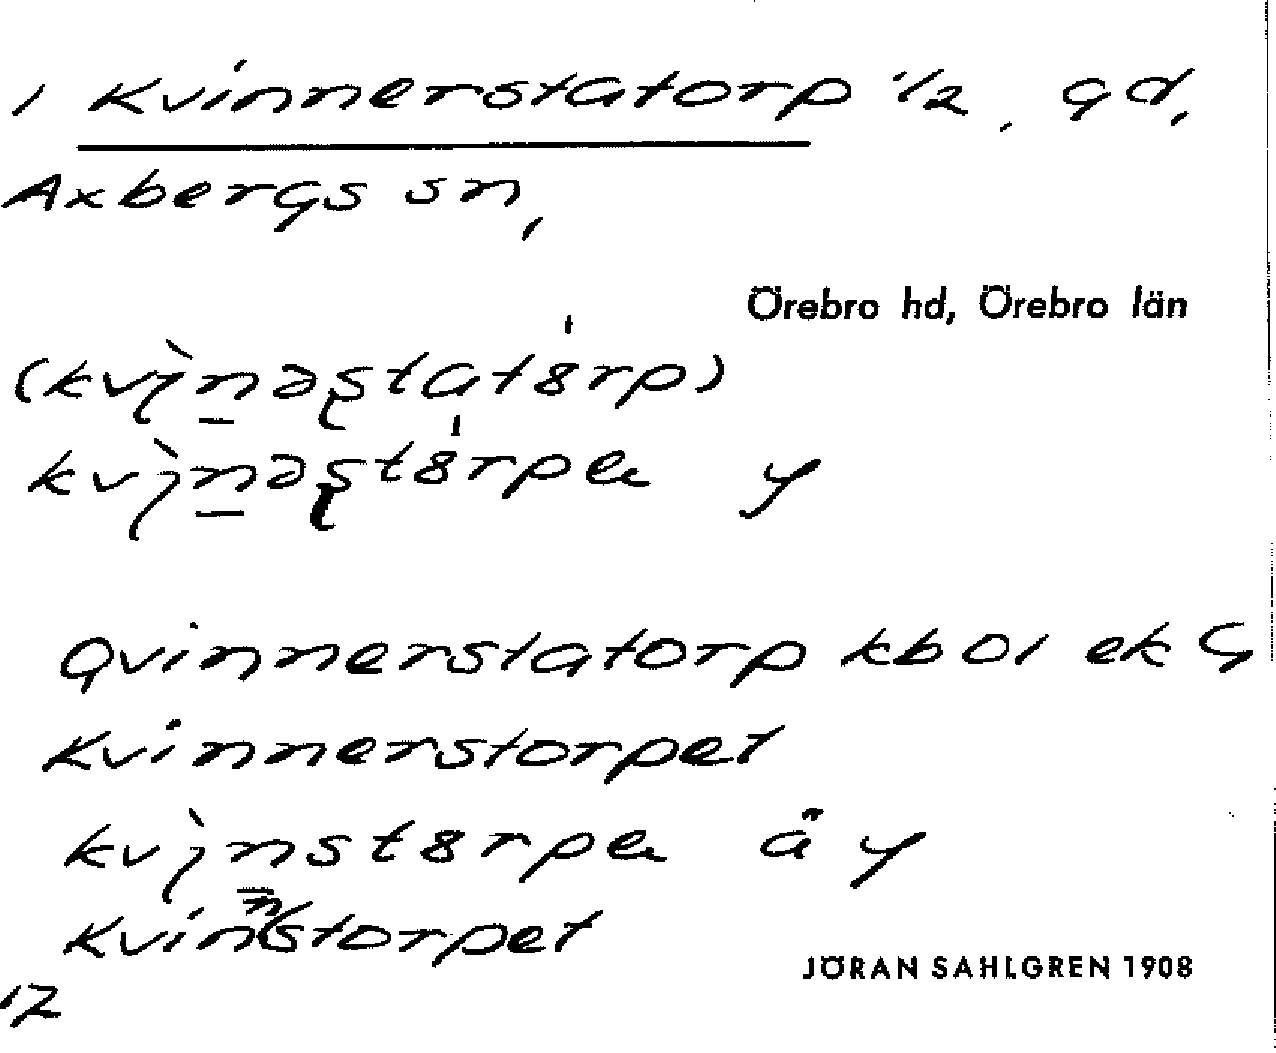 1 Kvinnerstatorp 1/2, gd,
Axbergs sn,
Örebro hd, Örebro län
(kvı̨̀n̲əʂtatȣ̍rp)
kvı̨̀n̲əʂtȣ̍rpeɩ y
Qvinnerstatorp kb 01 ek
Kvinnerstorpet
kvı̨̀nstȣrpeɩ ä y
Kvinnstorpet
JÖRAN SAHLGREN 1908
12